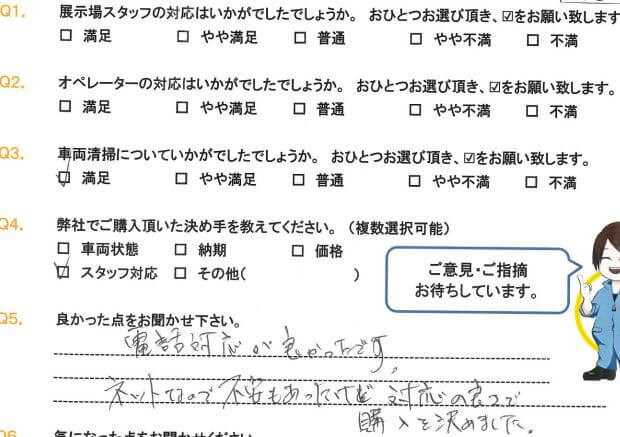 Q1. 展示場スタッフの対応はいかがでしたでしょうか。 おひとつお選び頂き、☑をお願い致します
□ 満足 □ やや満足 □ 普通 □ やや不満 □ 不満
Q2. オペレーターの対応はいかがでしたでしょうか。 おひとつお選び頂き、☑をお願い致します。
□ 満足 □ やや満足 □ 普通 □ やや不満 □ 不満
Q3. 車両清掃についていかがでしたでしょうか。 おひとつお選び頂き、☑をお願い致します。
☑ 満足 □ やや満足 □ 普通 □ やや不満 □ 不満
Q4. 弊社でご購入頂いた決め手を教えてください。(複数選択可能)
□ 車両状態 □ 納期 □ 価格
☑ スタッフ対応 □ その他( )
ご意見・ご指摘
お待ちしています。
Q5. 良かった点をお聞かせ下さい。
電話対応が良かったです。
ネットなので不安もあったけど対応の良さで
購入を決めました。
Q6 気になった点をお聞かせください